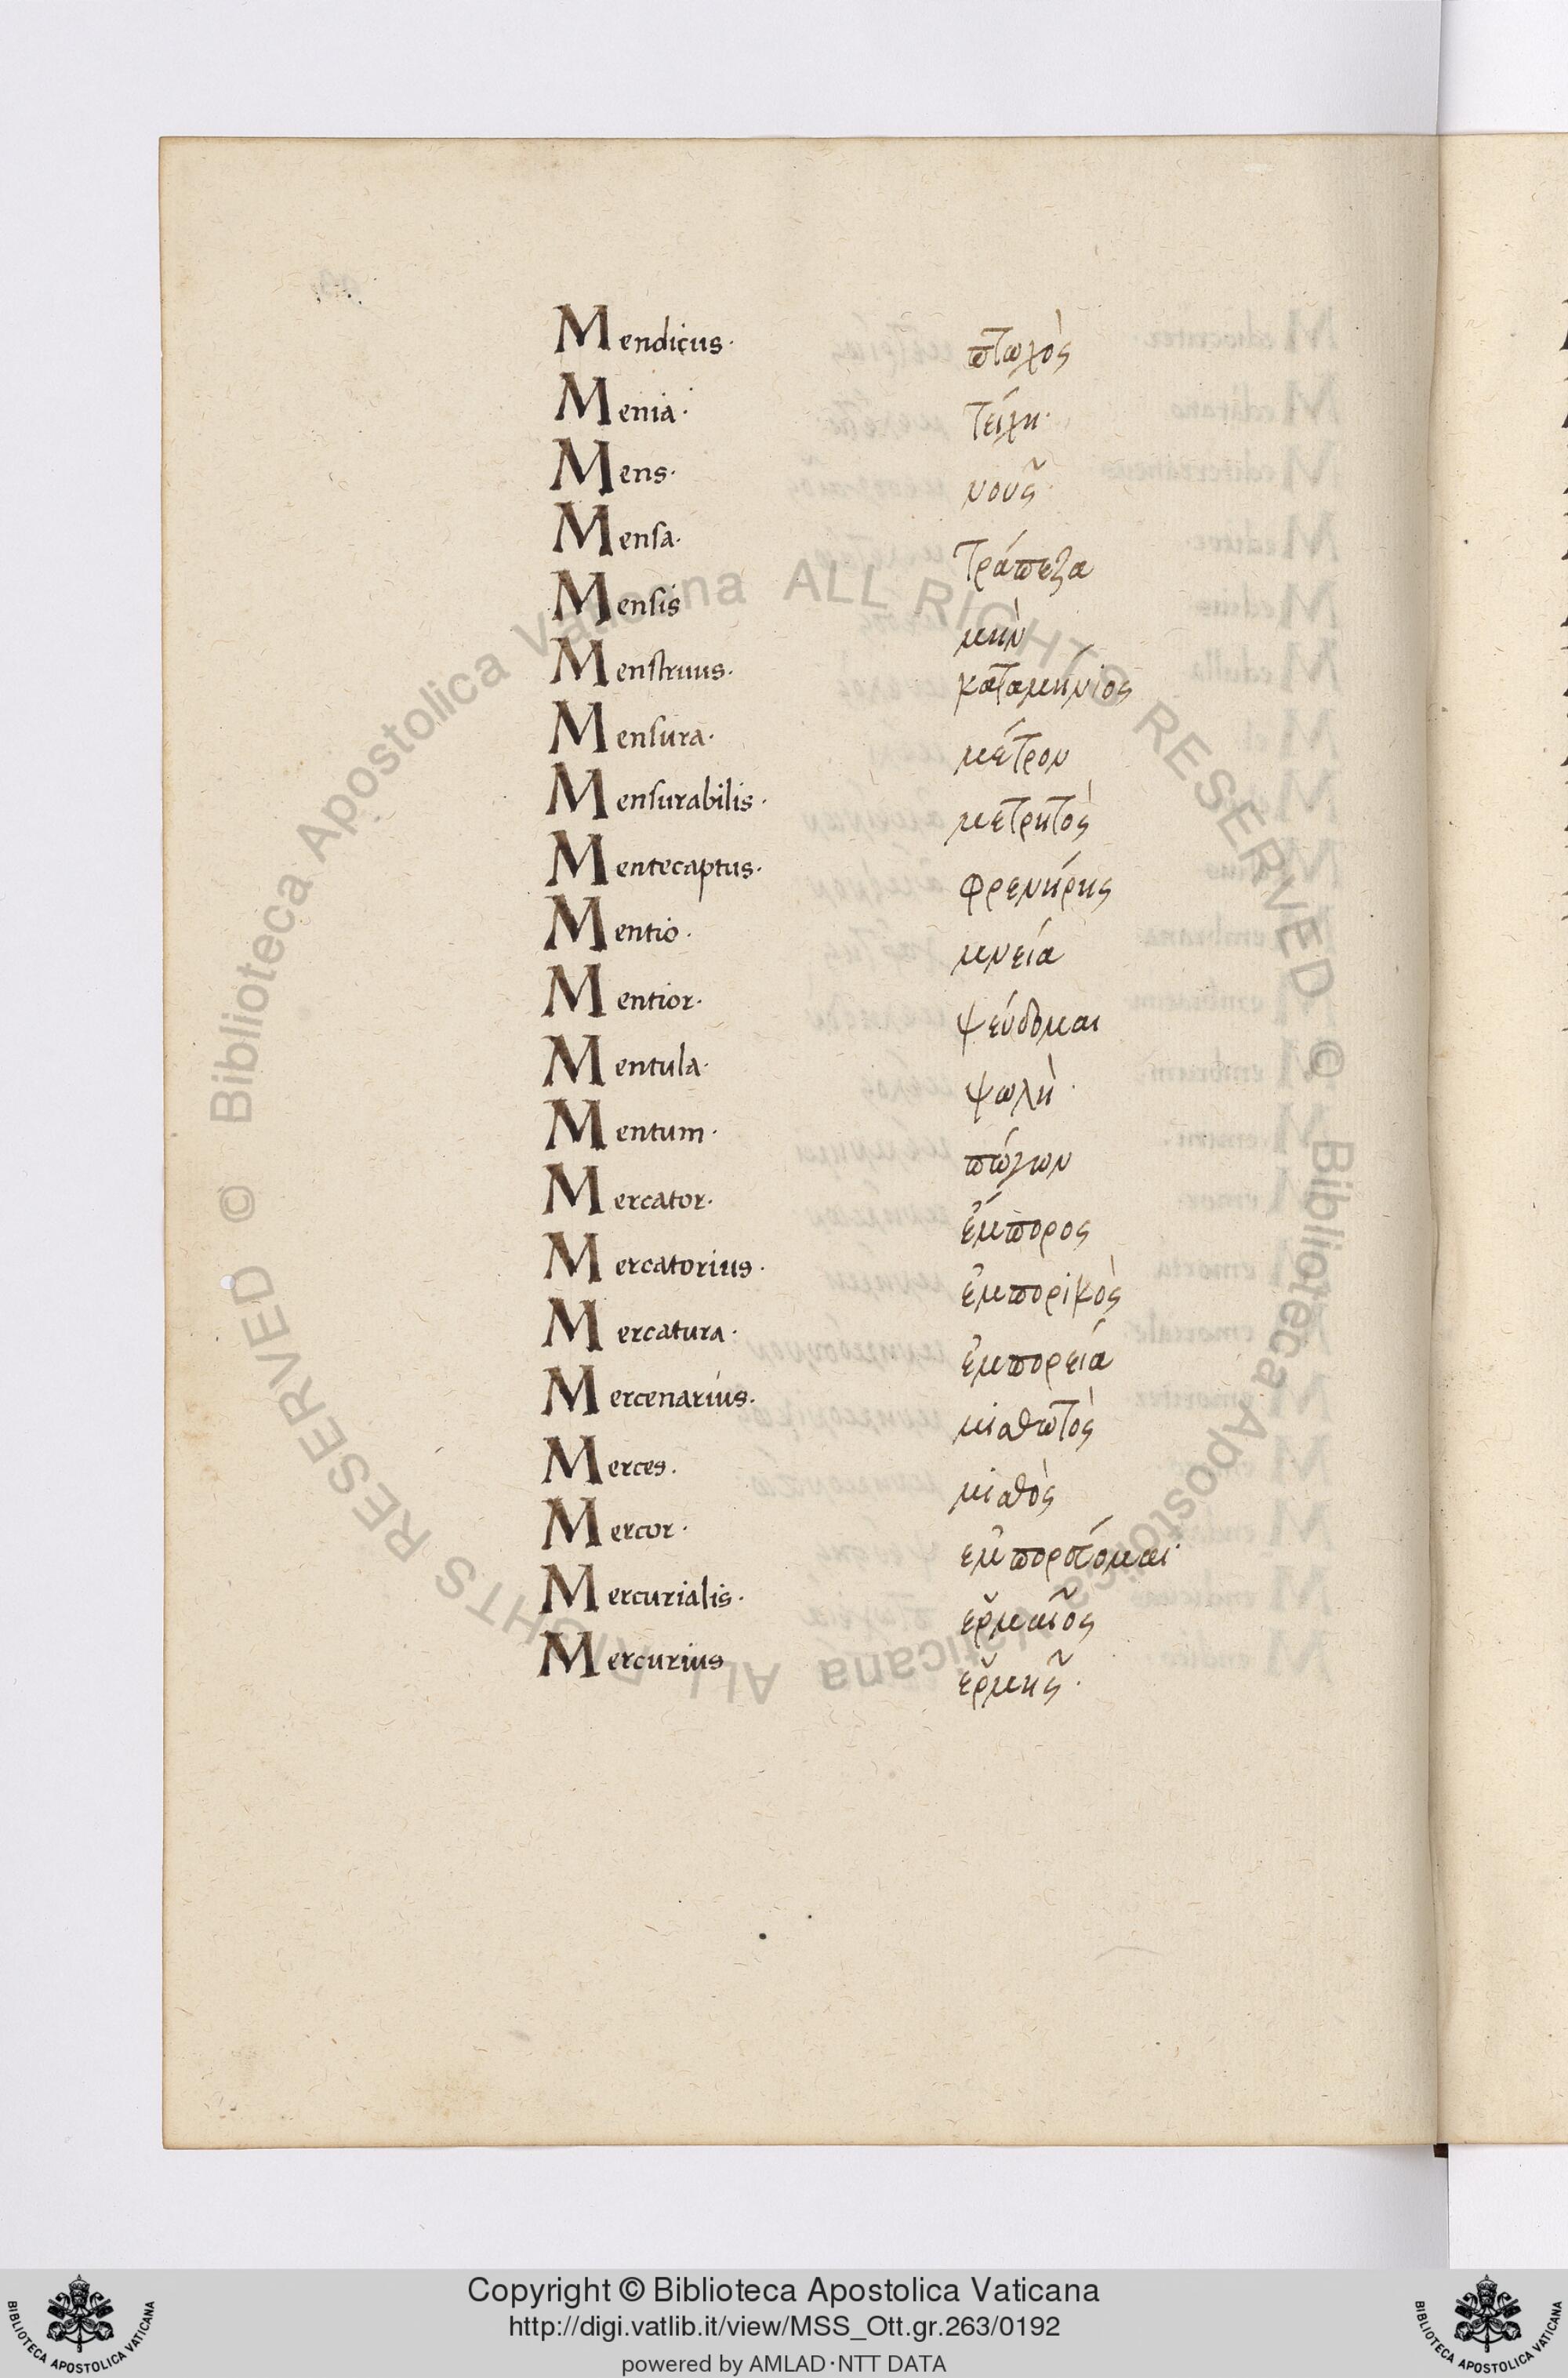 Mendicus· πτωχὸς
Menia· τείχη·
Mens· νοῦς·
Mensa· τράπεζα
Mensis μὴν
Menstruus· καταμήνιος
Mensura· μέτρον
Mensurabilis· μετρητὸς
Mentecaptus· φρενήρης
Mentio· μνεία
Mentior· ψεύδομαι
Mentula· ψωλὴ·
Mentum· πώγων
Mercator· ἔμπορος
Mercatorius· ἐμπορικὸς
Mercatura· ἐμπορεία
Mercenarius· μισθωτὸς
Merces· μισθὸς
Mercor· ἐμπορεύομαι
Mercurialis· ἑρμαῖος
Mercurius ἑρμῆς·
© Biblioteca Apostolica Vaticana ALL RIGHTS RESERVED © Biblioteca Apostolica Vaticana ALL RIGHTS RESERVED
Copyright © Biblioteca Apostolica Vaticana
http://digi.vatlib.it/view/MSS_Ott.gr.263/0192
powered by AMLAD·NTT DATA
BIBLIOTECA APOSTOLICA VATICANA
BIBLIOTECA APOSTOLICA VATICANA